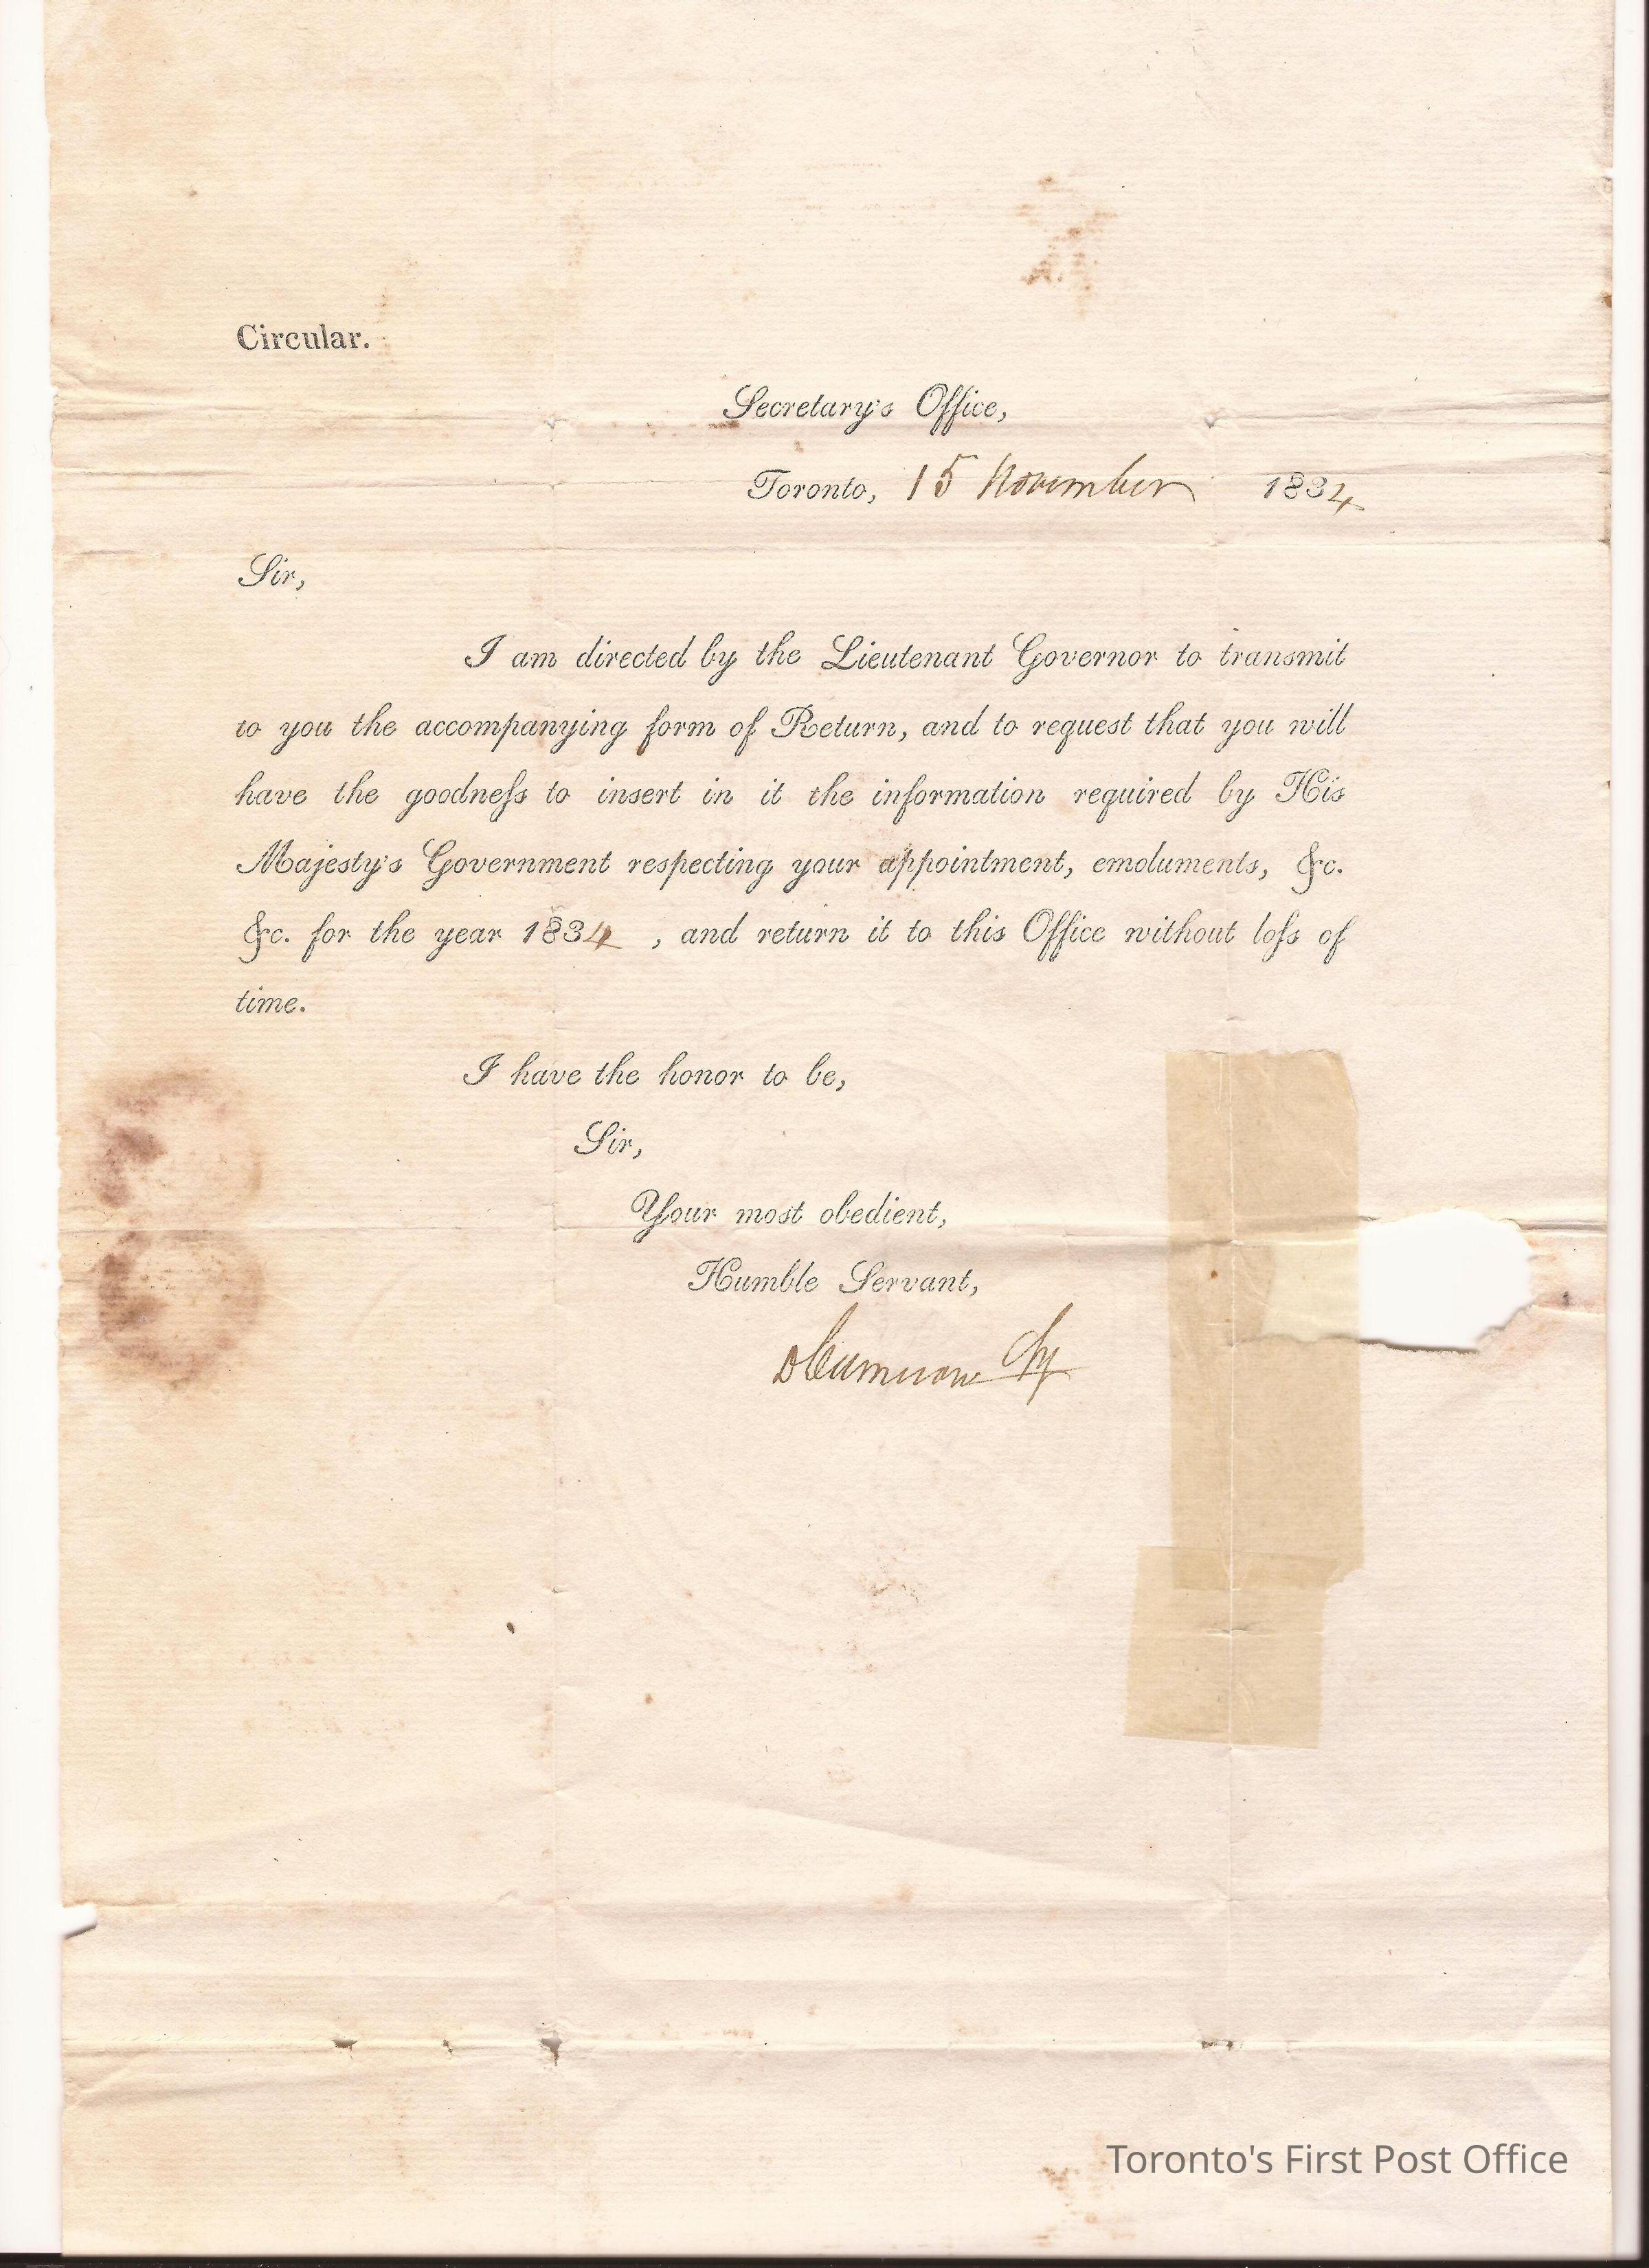 Circular.
Secretary's Office,
Toronto, 15 November 1834
Sir,
I am directed by the Lieutenant Governor to transmit
to you the accompanying form of Return, and to request that you will
have the goodneſs to insert in it the information required by His
Majesty's Government respecting your appointment, emoluments, &c.
&c. for the year 1834 , and return it to this Office without loſs of
time.
I have the honor to be,
Sir,
Your most obedient,
Humble Servant,
D Cameron
Toronto's First Post Office